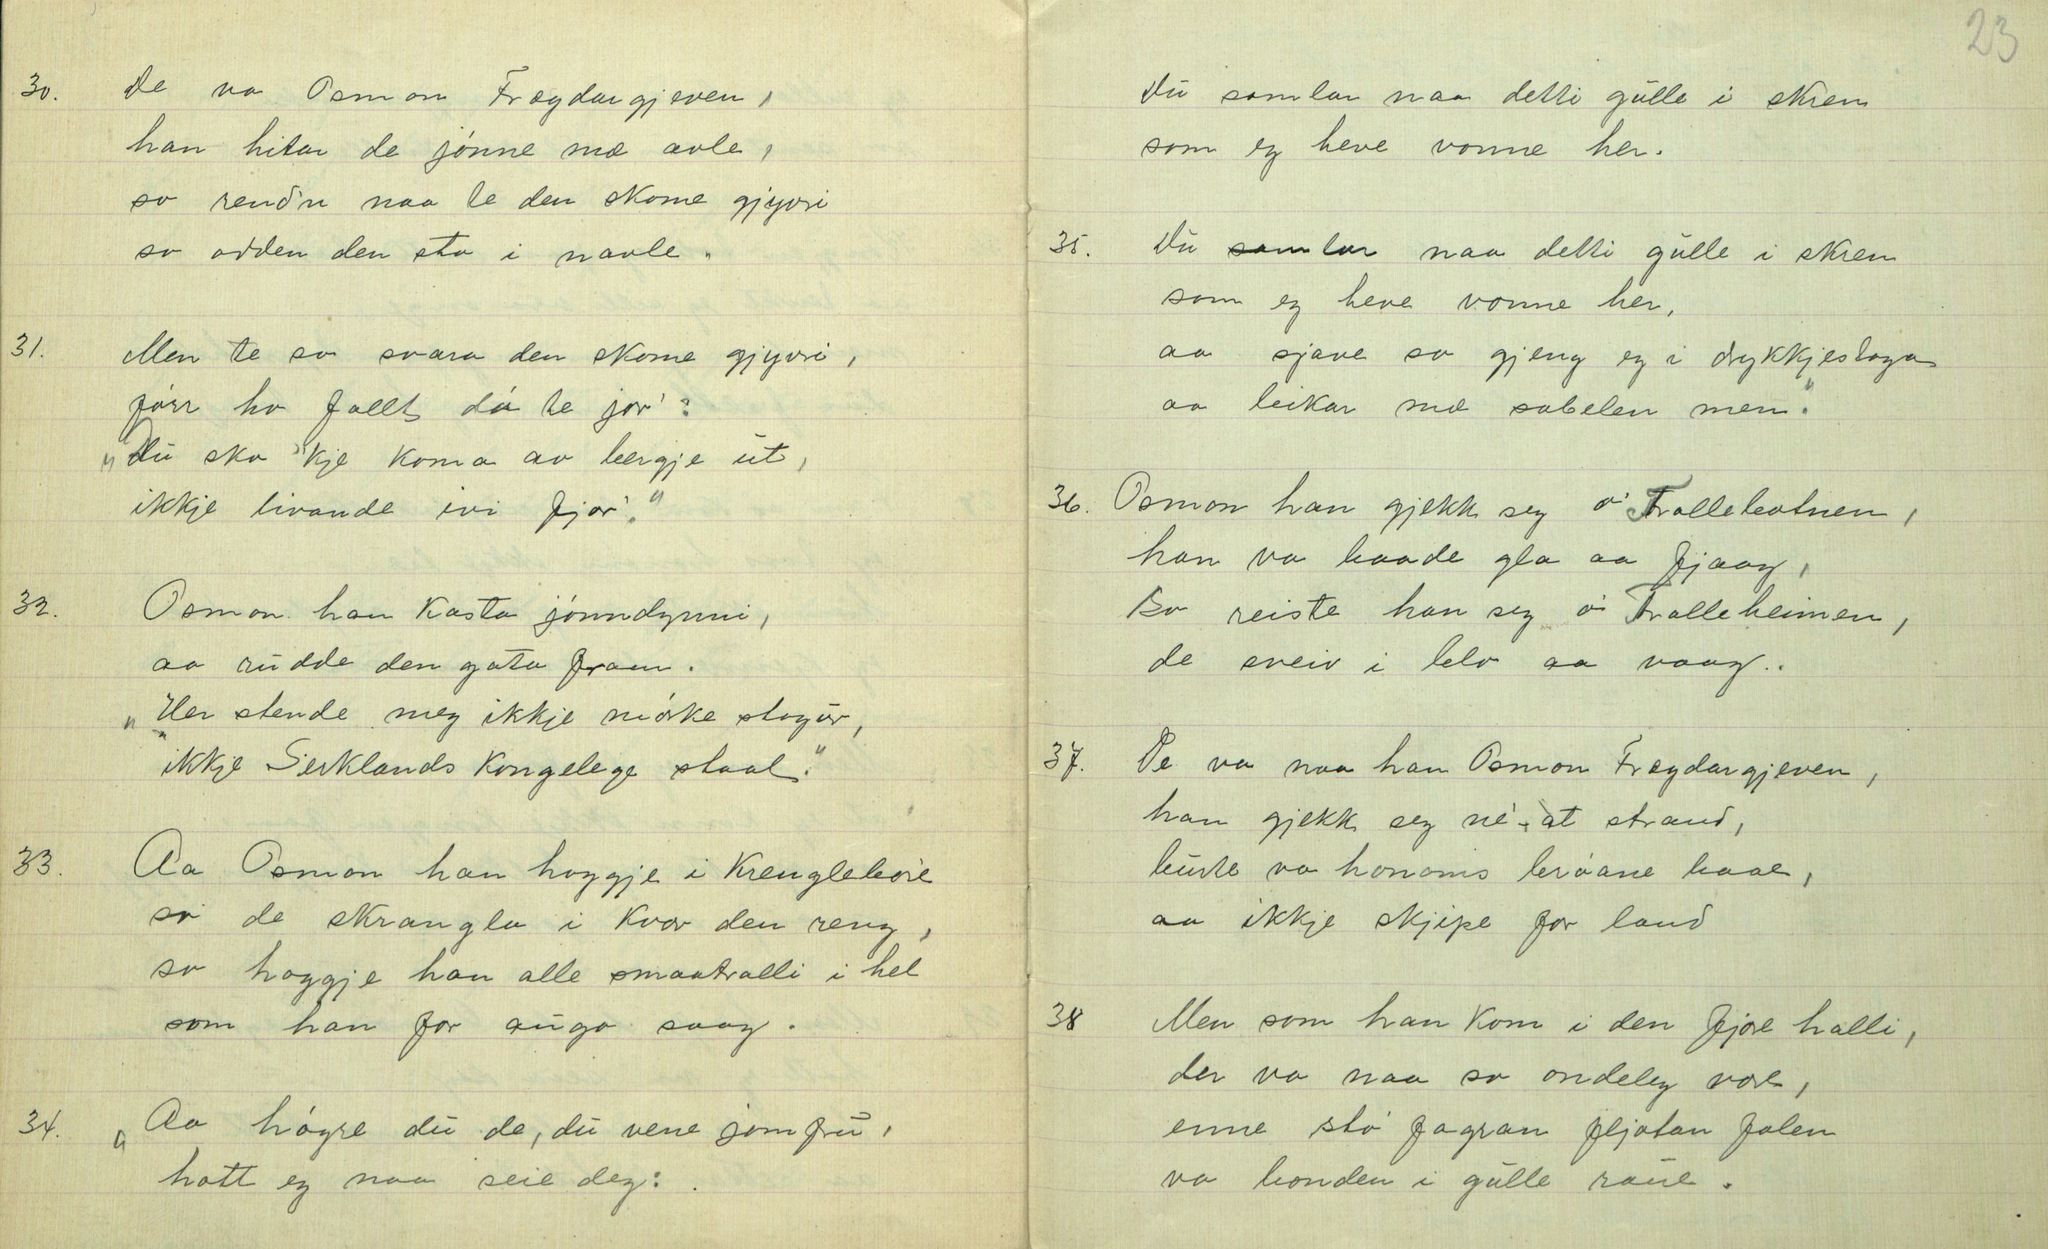 30. De va Osmon Frægdargjeven,
han hitar de jónne mæ avle,
so rend'n naa te den skome gjyvri
so odden den sto i navle.
31. Men te so svara den skome gjyvri,
fórr ho fallt dá te jor':
"Du ska 'kje koma av bergje út,
ikkje livande ivi fjor'."
32. Osmon han kasta jónndynni,
aa rudde den gata fram.
"Her stende meg ikkje mórke stogur,
ikkje Serklands kongelege staal."
33. Aa Osmon han hoggje i Krengleborè
so de skrangla i kvor den reng,
so hoggje han alle smaatrolli i hel
som han for augo saag.
34. "Aa hógre du de, du vene jomfru,
hott eg naa seie deg:
23
Du samlar naa detti gulle i skren
som eg heve vonne her.
35. Du samlar naa detti gulle i skren
som eg heve vonne her,
aa sjave so gjeng eg i drykkjestoga
aa leikar mæ sabelen men."
36. Osmon han gjekk seg ó' Trollebotnen,
han va baade gla aa fjaag,
so reiste han seg ó' Trolleheimen,
de sveiv i lelv aa vaag..
37. De va naa han Osmon Frægdargjeven,
han gjekk seg ne'-at strand,
burte va honoms bróane baae,
aa ikkje skjipe for land
38 Men som han kom i den fjóre halli,
der va naa so ondeleg vore,
enne stó fagran fljotan folen
va bonden i gulle raue.